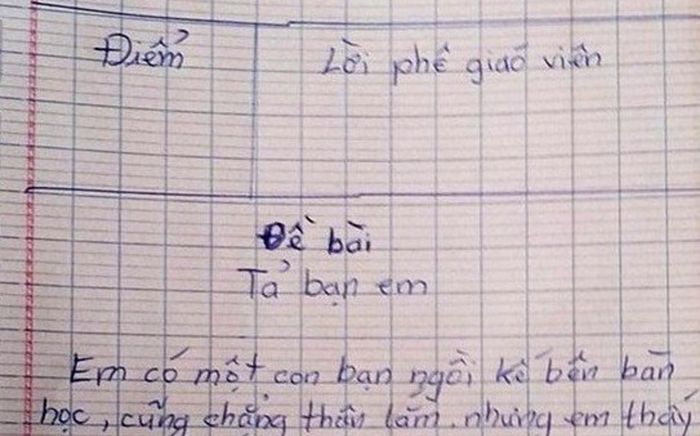 Điểm Lời phê giáo viên
Đề bài
Tả bạn em
Em có một con bạn ngồi kế bên bàn
học, cũng chẳng thân lắm. nhưng em thấy